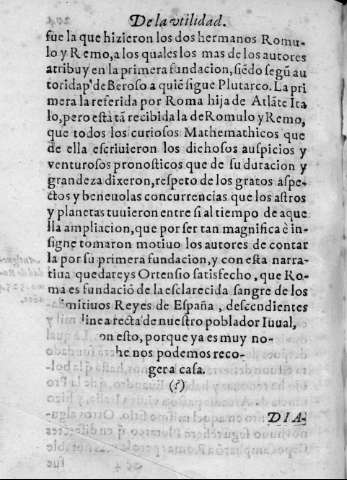 De la vtilidad.
fue la que hizieron los dos hermanos Romu-
lo y Remo, a los quales los mas de los autores
atribuyẽ la primera fundacion, siẽdo segũ au
toridap' de Beroso a quiẽ sigue Plutarco. La pri
mera la referida por Roma hija de Atlãte Ita
lo, pero està tã recibida la de Romulo y Remo,
que todos los curiosos Mathemathicos que
de ella escriuieron los dichosos auspicios y
venturosos pronosticos que de su duracion y
grandeza dixeron, respeto de los gratos aspe-
ctos y beneuolas concurrencias que los astros
y planetas tuuieron entre si al tiempo de aque
lla ampliacion, que por ser tan magnifica è in-
signe tomaron motiuo los autores de contar
la por su primera fundacion, y con esta narra-
tiua quedareys Ortensio satisfecho, que Ro-
ma es fundaciõ de la esclarecida sangre de los
imitiuos Reyes de España, descendientes
linea recta de nuestro poblador Iuual,
on esto, porque ya es muy no-
he nos podemos reco-
gera casa.
(∫)
DIA-